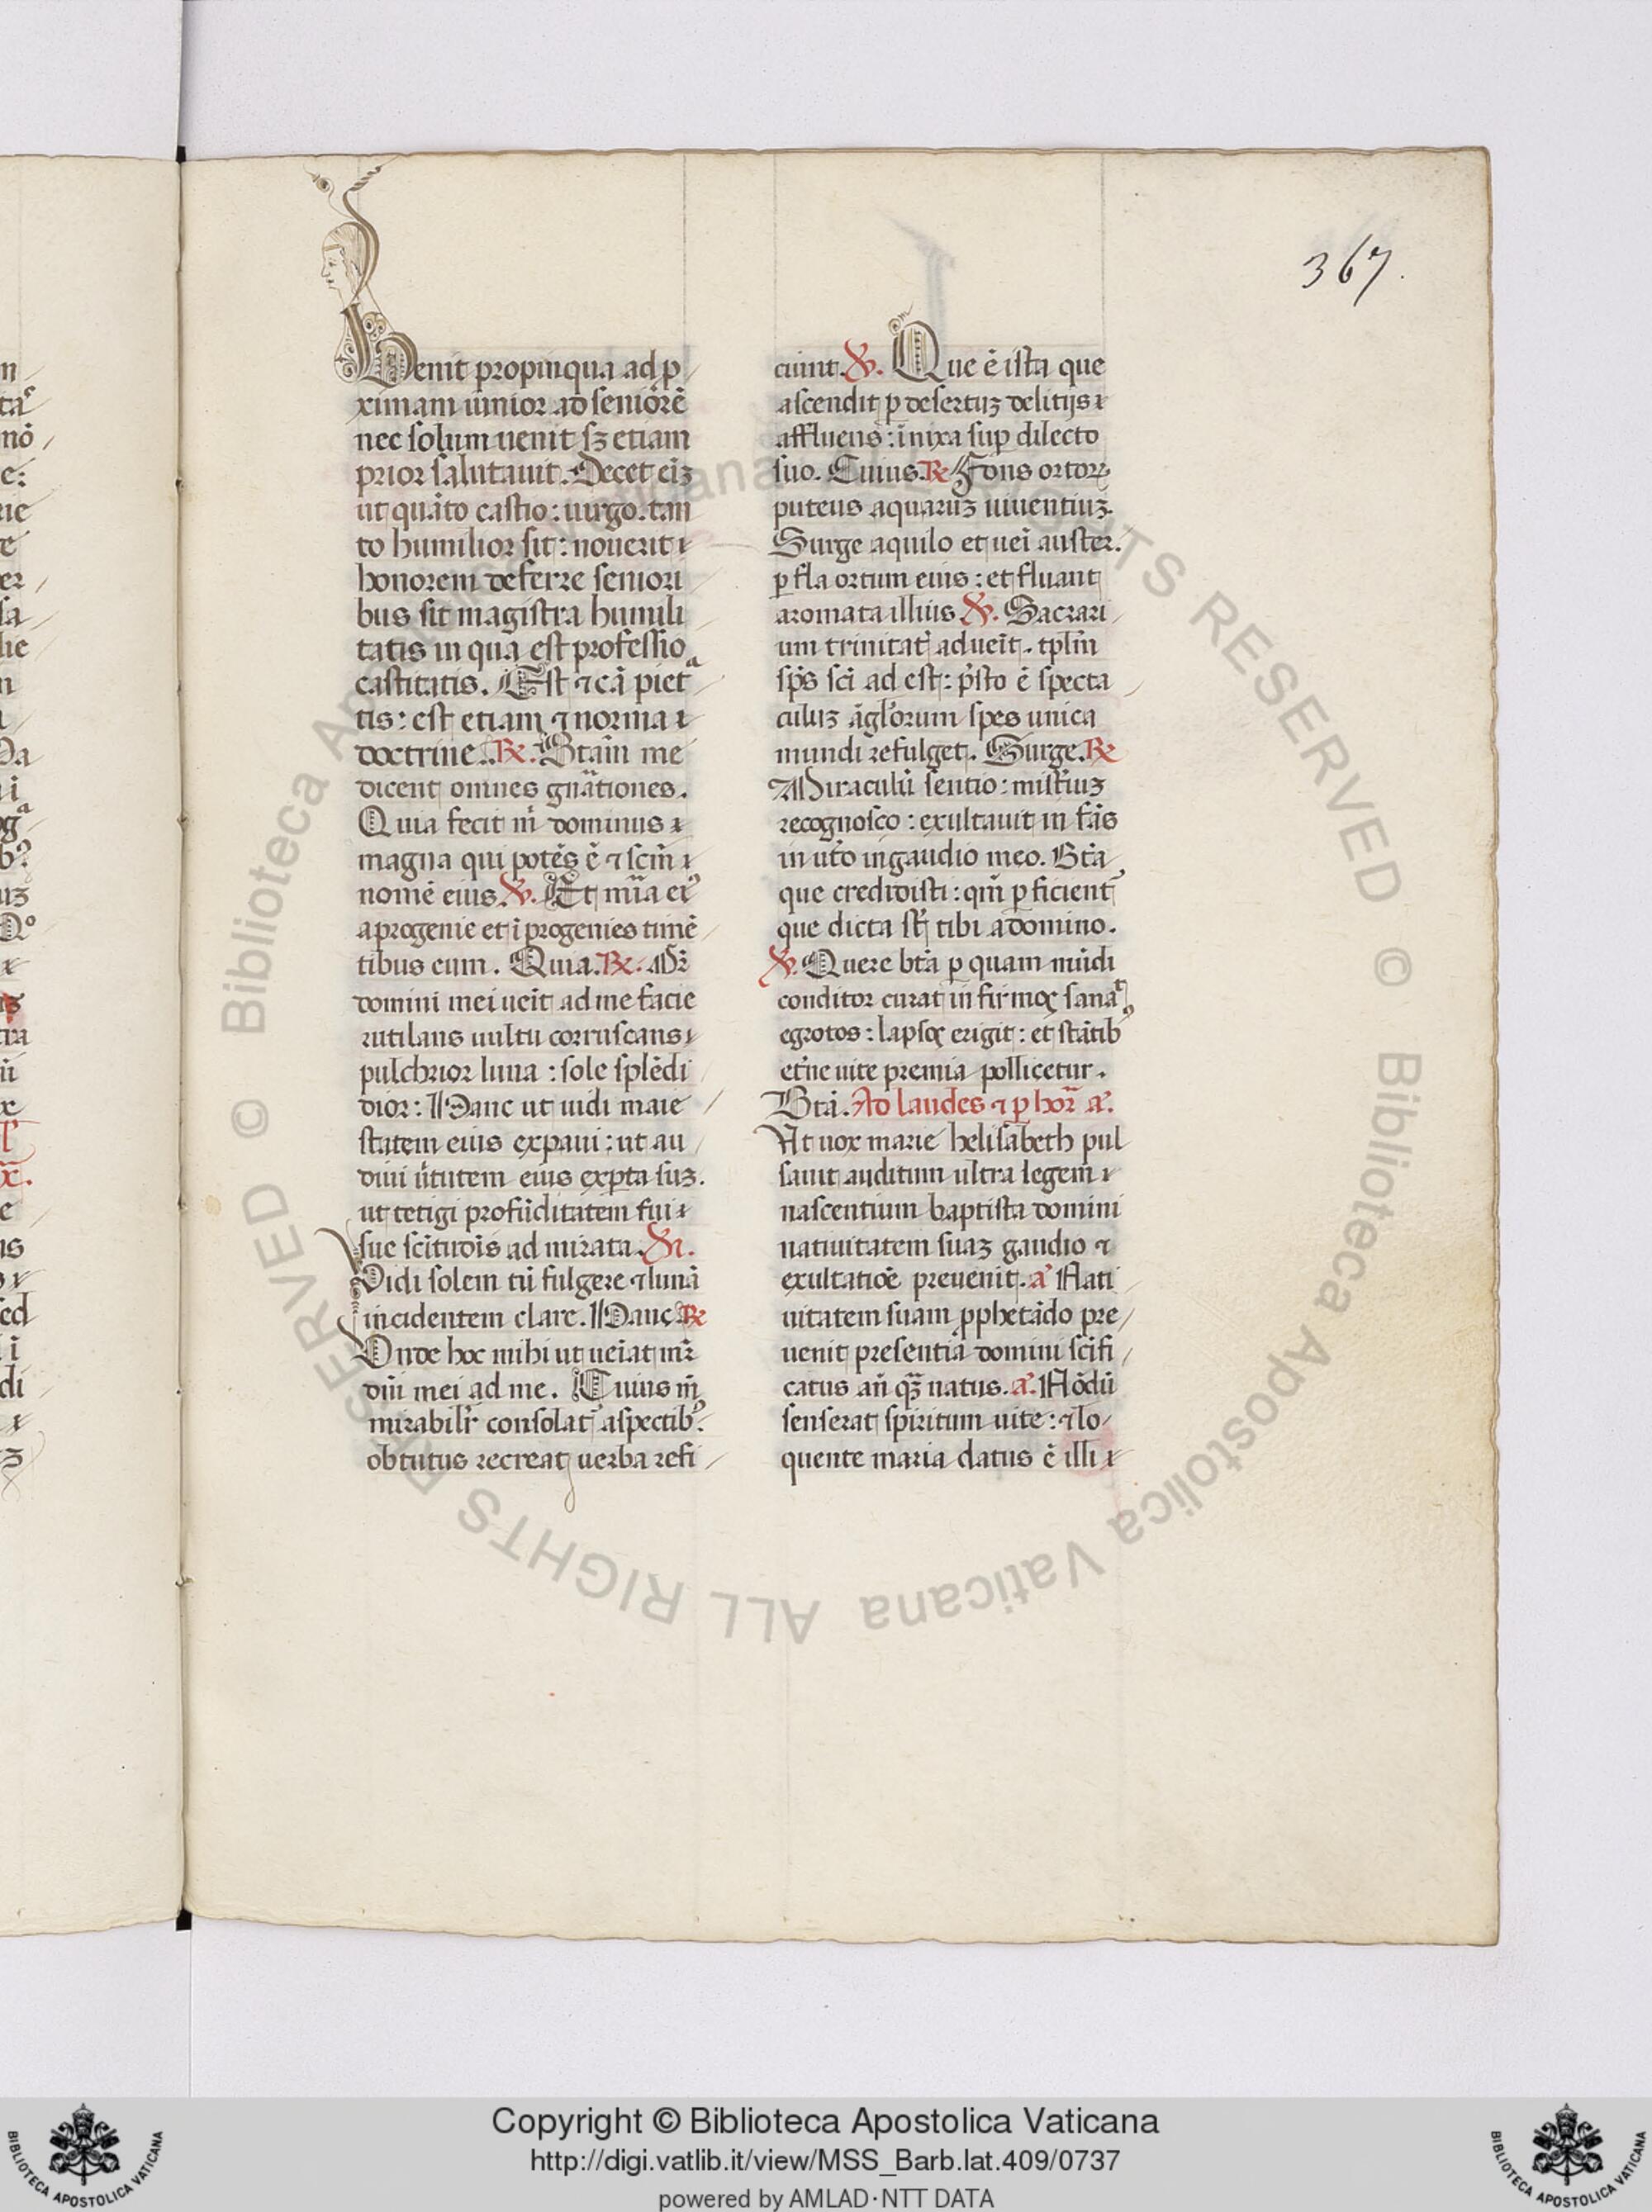 367.
Uenit propinqua ad p
ximam iunior ad seniorē
nec solum uenit sꝫ etiam
prior salutauit. Decet eīꝫ
ut quāto castio: uirgo. tan
to humilior sit: nouerit
honorem deferre seniori
bus sit magistra humili
tatis in qua est professio
castitatis. Est ⁊ cā pietᵃ
tis: est etiam ⁊ norma
doctrine. ℟. Btam̄ me
dicent omnes gnātiones.
Quia fecit m̄ dominus
magna qui potēs ē ⁊ scm̄
nomē eius ℣. Et mīa eiꝰ
a progenie et ī progenies timē
tibus eum. Quia. ℟. Mr̄
domini mei ueīt ad me facie
rutilans uultu corruscans
pulchrior luna: sole splēdi
dior: Hanc ut uidi maie
statem eius expaui: ut au
diui ūtutem eius exꝑta suꝫ.
ut tetigi profūditatem fui
sue scītudīs ad mirata. ℣.
Vidi solem tū fulgere ⁊ lunā
incidentem clare. Hanc ℟
Unde hoc mihi ut ueīat mr̄
dn̄i mei ad me. Cuius m̄
mirabilr̄ consolatᷣ aspectibꝰ.
obtutus recreat uerba refi
ciunt. ℣. Que ē ista que
ascendit ꝑ desertuꝫ delitijs
affluens: īnixa suꝑ dilecto
suo. Cuius. ℟ Fons ortoꝝ
puteus aquaruꝫ uiuentiuꝫ.
Surge aquilo et ueī auster.
ꝑfla ortum eius: et fluant
aromata illius ℣. Sacrari
um trinitatꝭ adueīt. tplm̄
sp̄s sc̄i ad est: p̄sto ē specta
culuꝫ āglorum spes unica
mundi refulget. Surge. ℟
Miraculū sentio: mistꝰiuꝫ
recognosco: exultauit in fās
in utō in gaudio meo. Btā
que credidisti: qm̄ ꝑficientᷣ
que dicta st̄ tibi a domino.
℣. Quere btā ꝑ quam mūdi
conditor curat infirmos sanatᷣ
egrotos: lapsos erigit: et stātibꝰ
etn̄e uite premia pollicetur.
Btā. Ad laudes ⁊ ꝑ hor̄ a.
At uox marie helisabeth pul
sauit auditum ultra legem
nascentium baptista domini
natiuitatem suaꝫ gaudio ⁊
exultatiōe preuenit. a Nati
uitatem suam ꝓphetādo pre
uenit presentia domini scīfi
catus an̄ qꝫ natus. a. Nōdū
senserat spiritum uite: ⁊ lo
quente maria datus ē illi
© Biblioteca Apostolica Vaticana ALL RIGHTS RESERVED © Biblioteca Apostolica Vaticana ALL RIGHTS RESERVED
Copyright © Biblioteca Apostolica Vaticana
http://digi.vatlib.it/view/MSS_Barb.lat.409/0737
powered by AMLAD·NTT DATA
BIBLIOTECA APOSTOLICA VATICANA
BIBLIOTECA APOSTOLICA VATICANA